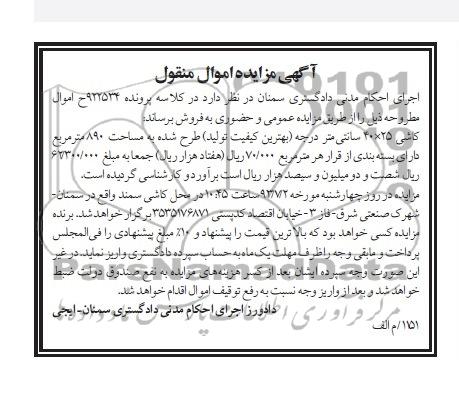 آگهی مزایده اموال منقول
اجرای احکام مدنی دادگستری سمنان در نظر دارد در کلاسه پرونده ۹۲۲۵۳۴ح اموال
مطروحه ذیل را از طریق مزایده عمومی و حضوری به فروش برساند:
کاشی ۲۵×۴۰ سانتی‌متر درجه (بهترین کیفیت تولید) طرح شده به مساحت ۸۹۰ مترمربع
دارای بسته‌بندی از قرار هر مترمربع ۷۰/۰۰۰ ریال (هفتاد هزار ریال) جمعا به مبلغ ۶۲۳۰۰/۰۰۰
ریال شصت و دو میلیون و سیصد هزار ریال است برآورد و کارشناسی گردیده است.
مزایده در روز چهارشنبه مورخه ۹۳/۷/۲ ساعت ۱۰:۴۵ در محل کاشی سمند واقع در سمنان-
شهرک صنعتی شرق- فاز ۳-خیابان اقتصاد کدپستی ۳۵۳۵۱۷۶۸۷۱ برگزار خواهد شد. برنده
مزایده کسی خواهد بود که بالاترین قیمت را پیشنهاد و ۱۰٪ مبلغ پیشنهادی را فی‌المجلس
پرداخت و مابقی وجه را ظرف مهلت یک ماه به حساب سپرده دادگستری واریز نماید. در غیر
این صورت وجه سپرده ایشان بعد از کسر هزینه‌های مزایده به نفع صندوق دولت ضبط
خواهد شد و بعد از واریز وجه نسبت به رفع توقیف اموال اقدام خواهد شد.
دادورز اجرای احکام مدنی دادگستری سمنان- ایجی
۱۱۵۱/م الف